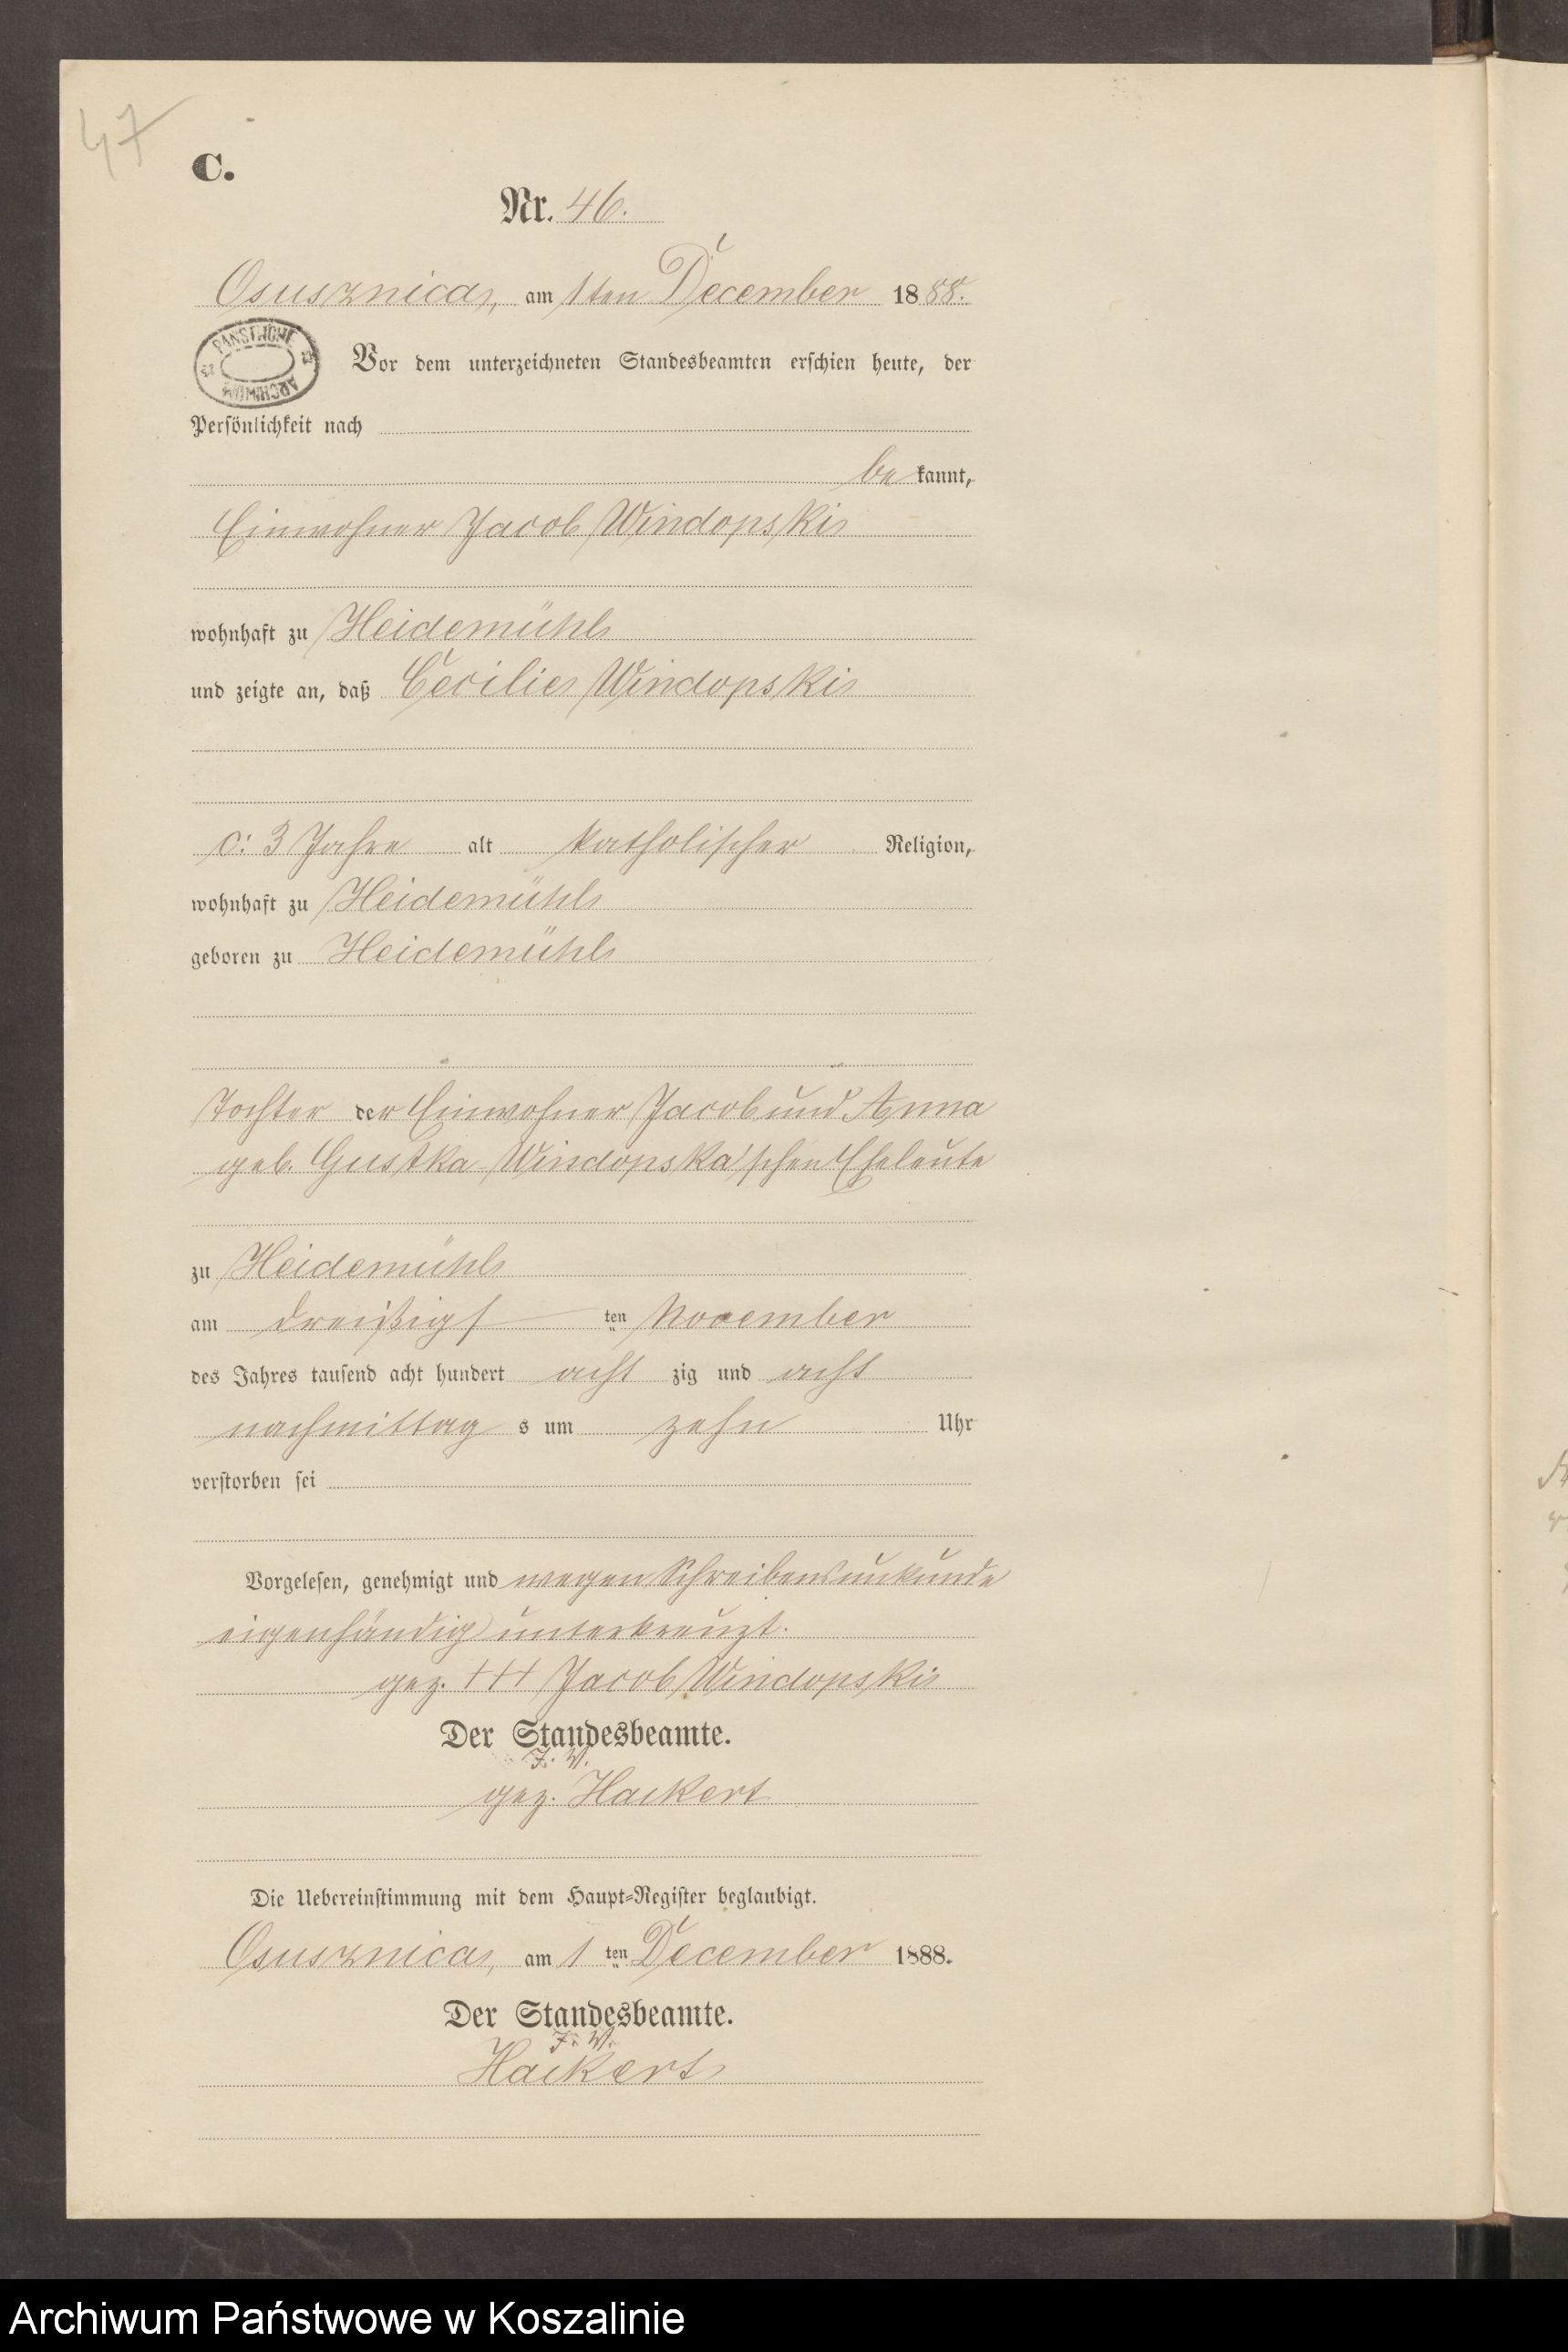 47
C.
Nr. 46.
Osusznica, am 1ten December 1888.
PAŃSTWOWE ARCHIWUM
Vor dem unterzeichneten Standesbeamten erschien heute, der
Persönlichkeit nach
bekannt,
Einwohner Jacob Windopski
wohnhaft zu Heidemühl
und zeigte an, daß Cecilie Windopski
c: 3 Jahre alt katholischer Religion,
wohnhaft zu Heidemühl
geboren zu Heidemühl
Tochter der Einwohner Jacob und Anna
geb. Gustka Windopska'schen Eheleute
zu Heidemühl
am dreißigsten November
des Jahres tausend acht hundert achtzig und acht
nachmittags um zehn Uhr
verstorben sei
Vorgelesen, genehmigt und wegen Schreibensunkunde
eigenhändig unterkreuzt.
gez. +++ Jacob Windopski
Der Standesbeamte.
I. V.
gez. Hackert
Die Uebereinstimmung mit dem Haupt-Register beglaubigt.
Osusznica, am 1ten December 1888.
Der Standesbeamte.
I. V.
Hackert
Archiwum Państwowe w Koszalinie